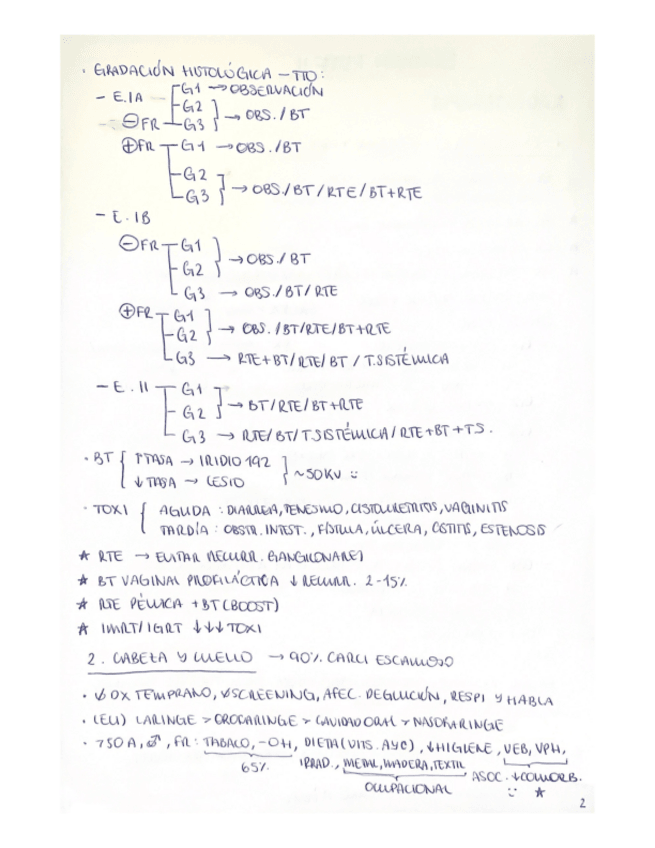 · GRADACIÓN HISTOLÓGICA – TTO:
– E.IA G1 → OBSERVACIÓN
G2
⊖FR G3 } → OBS./BT
⊕FR G1 → OBS./BT
G2
G3 } → OBS./BT/RTE/BT+RTE
– E.IB
⊖FR G1
G2 } → OBS./BT
G3 → OBS./BT/RTE
⊕FR G1
G2 } → OBS./BT/RTE/BT+RTE
G3 → RTE+BT/RTE/BT/T.SISTÉMICA
– E.II G1
G2 } → BT/RTE/BT+RTE
G3 → RTE/BT/T.SISTÉMICA/RTE+BT+TS.
· BT { ↑TASA → IRIDIO 192
↓TASA → CESIO } ~50KV :)
· TOXI { AGUDA: DIARREA, TENESMO, CISTOURETRITIS, VAGINITIS
TARDÍA: OBSTR. INTEST., FÍSTULA, ÚLCERA, CISTITIS, ESTENOSIS
★ RTE → EVITAR RECURR. GANGLIONARES
★ BT VAGINAL PROFILÁCTICA ↓ RECURR. 2-15%
★ RTE PÉLVICA + BT (BOOST)
★ IMRT/IGRT ↓↓↓ TOXI
2. CABEZA Y CUELLO → 90% CARCI ESCAMOSO
· ↓ DX TEMPRANO, ↓ SCREENING, AFEC. DEGLUCIÓN, RESPI Y HABLA
· (EU) LARINGE > OROFARINGE > CAVIDAD ORAL > NASOFARINGE
· >50A, ♂, FR: TABACO, -OH, DIETA (VITS. A Y C), ↓HIGIENE, VEB, VPH,
65% IRRAD., METAL, MADERA, TEXTIL ASOC. ↓COMORB.
OCUPACIONAL :) ★
2